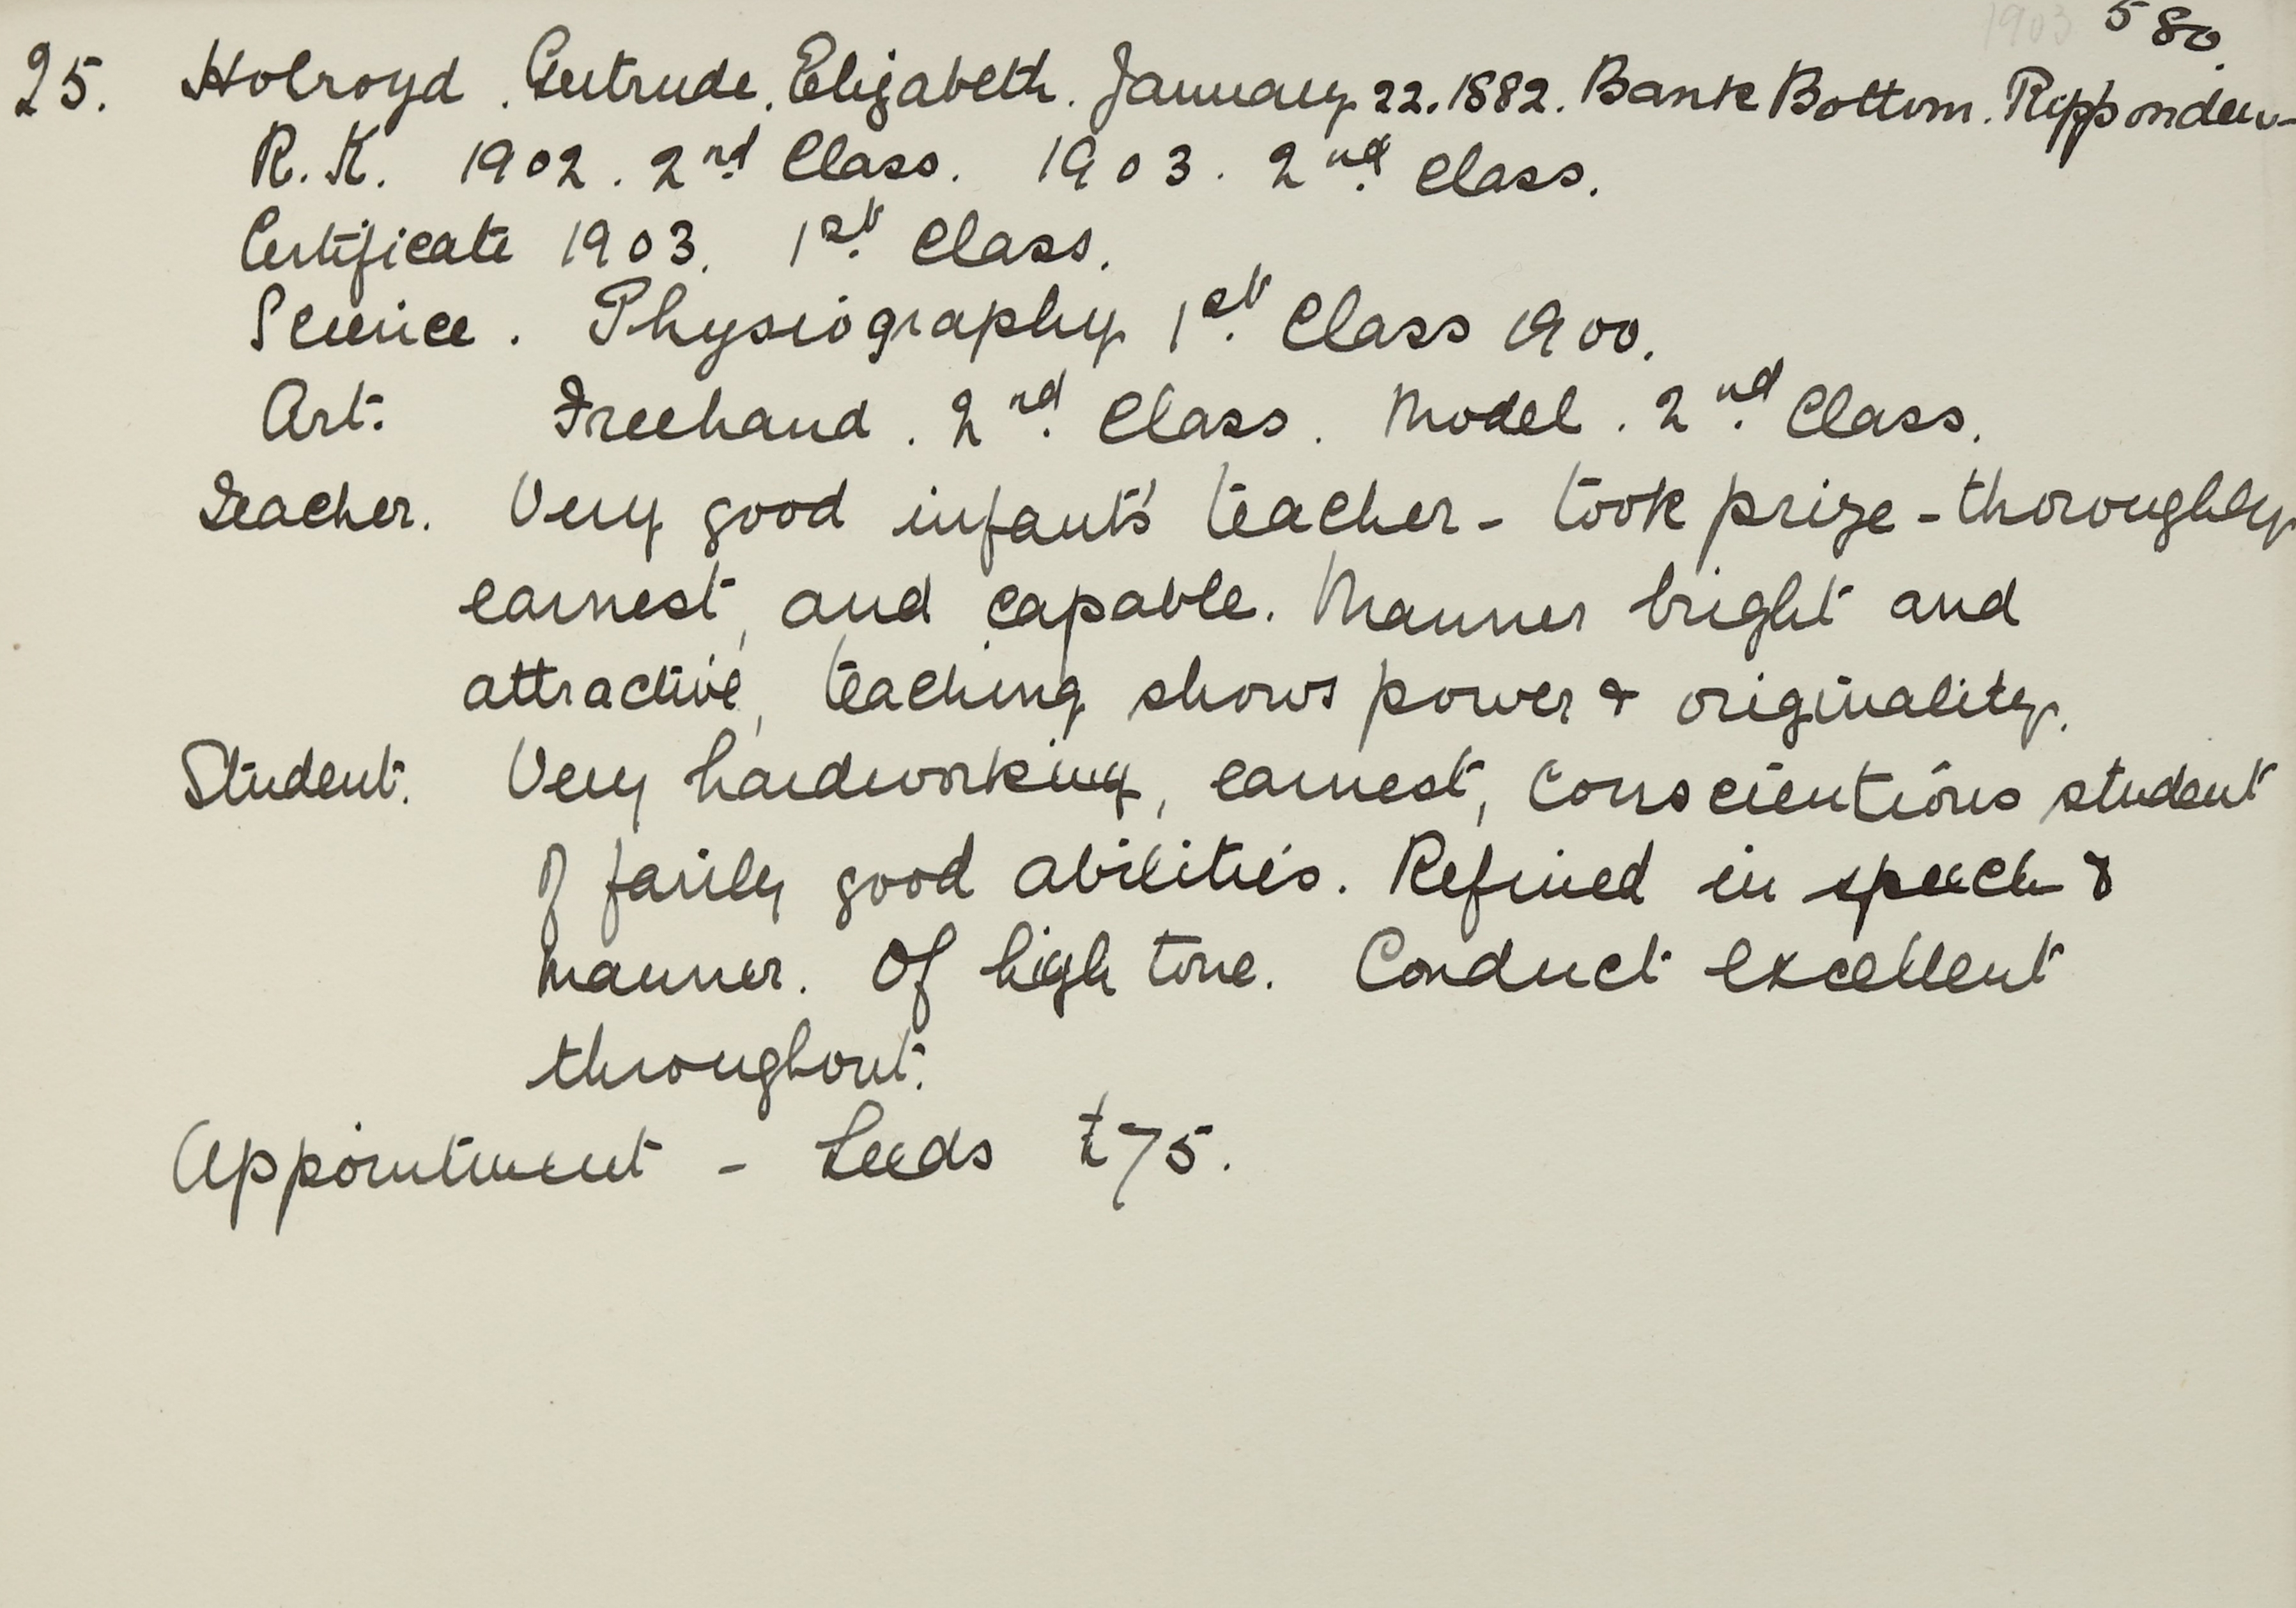 1903 580.
25. Holroyd. Gertrude. Elizabeth. January 22. 1882. Bank Bottom. Ripponden-
R. K. 1902. 2nd Class. 1903. 2nd Class.
Certificate 1903. 1st Class.
Science. Physiography 1st Class 1900.
Art. Freehand. 2nd Class. Model. 2nd Class.
Teacher. Very good infants' teacher - took prize - thoroughly
earnest, and capable. Manner bright and
attractive, teaching shows power & originality.
Student. Very hardworking, earnest, conscientious student
of fairly good abilities. Refined in speech &
manner. Of high tone. Conduct excellent
throughout.
Appointment - Leeds £75.